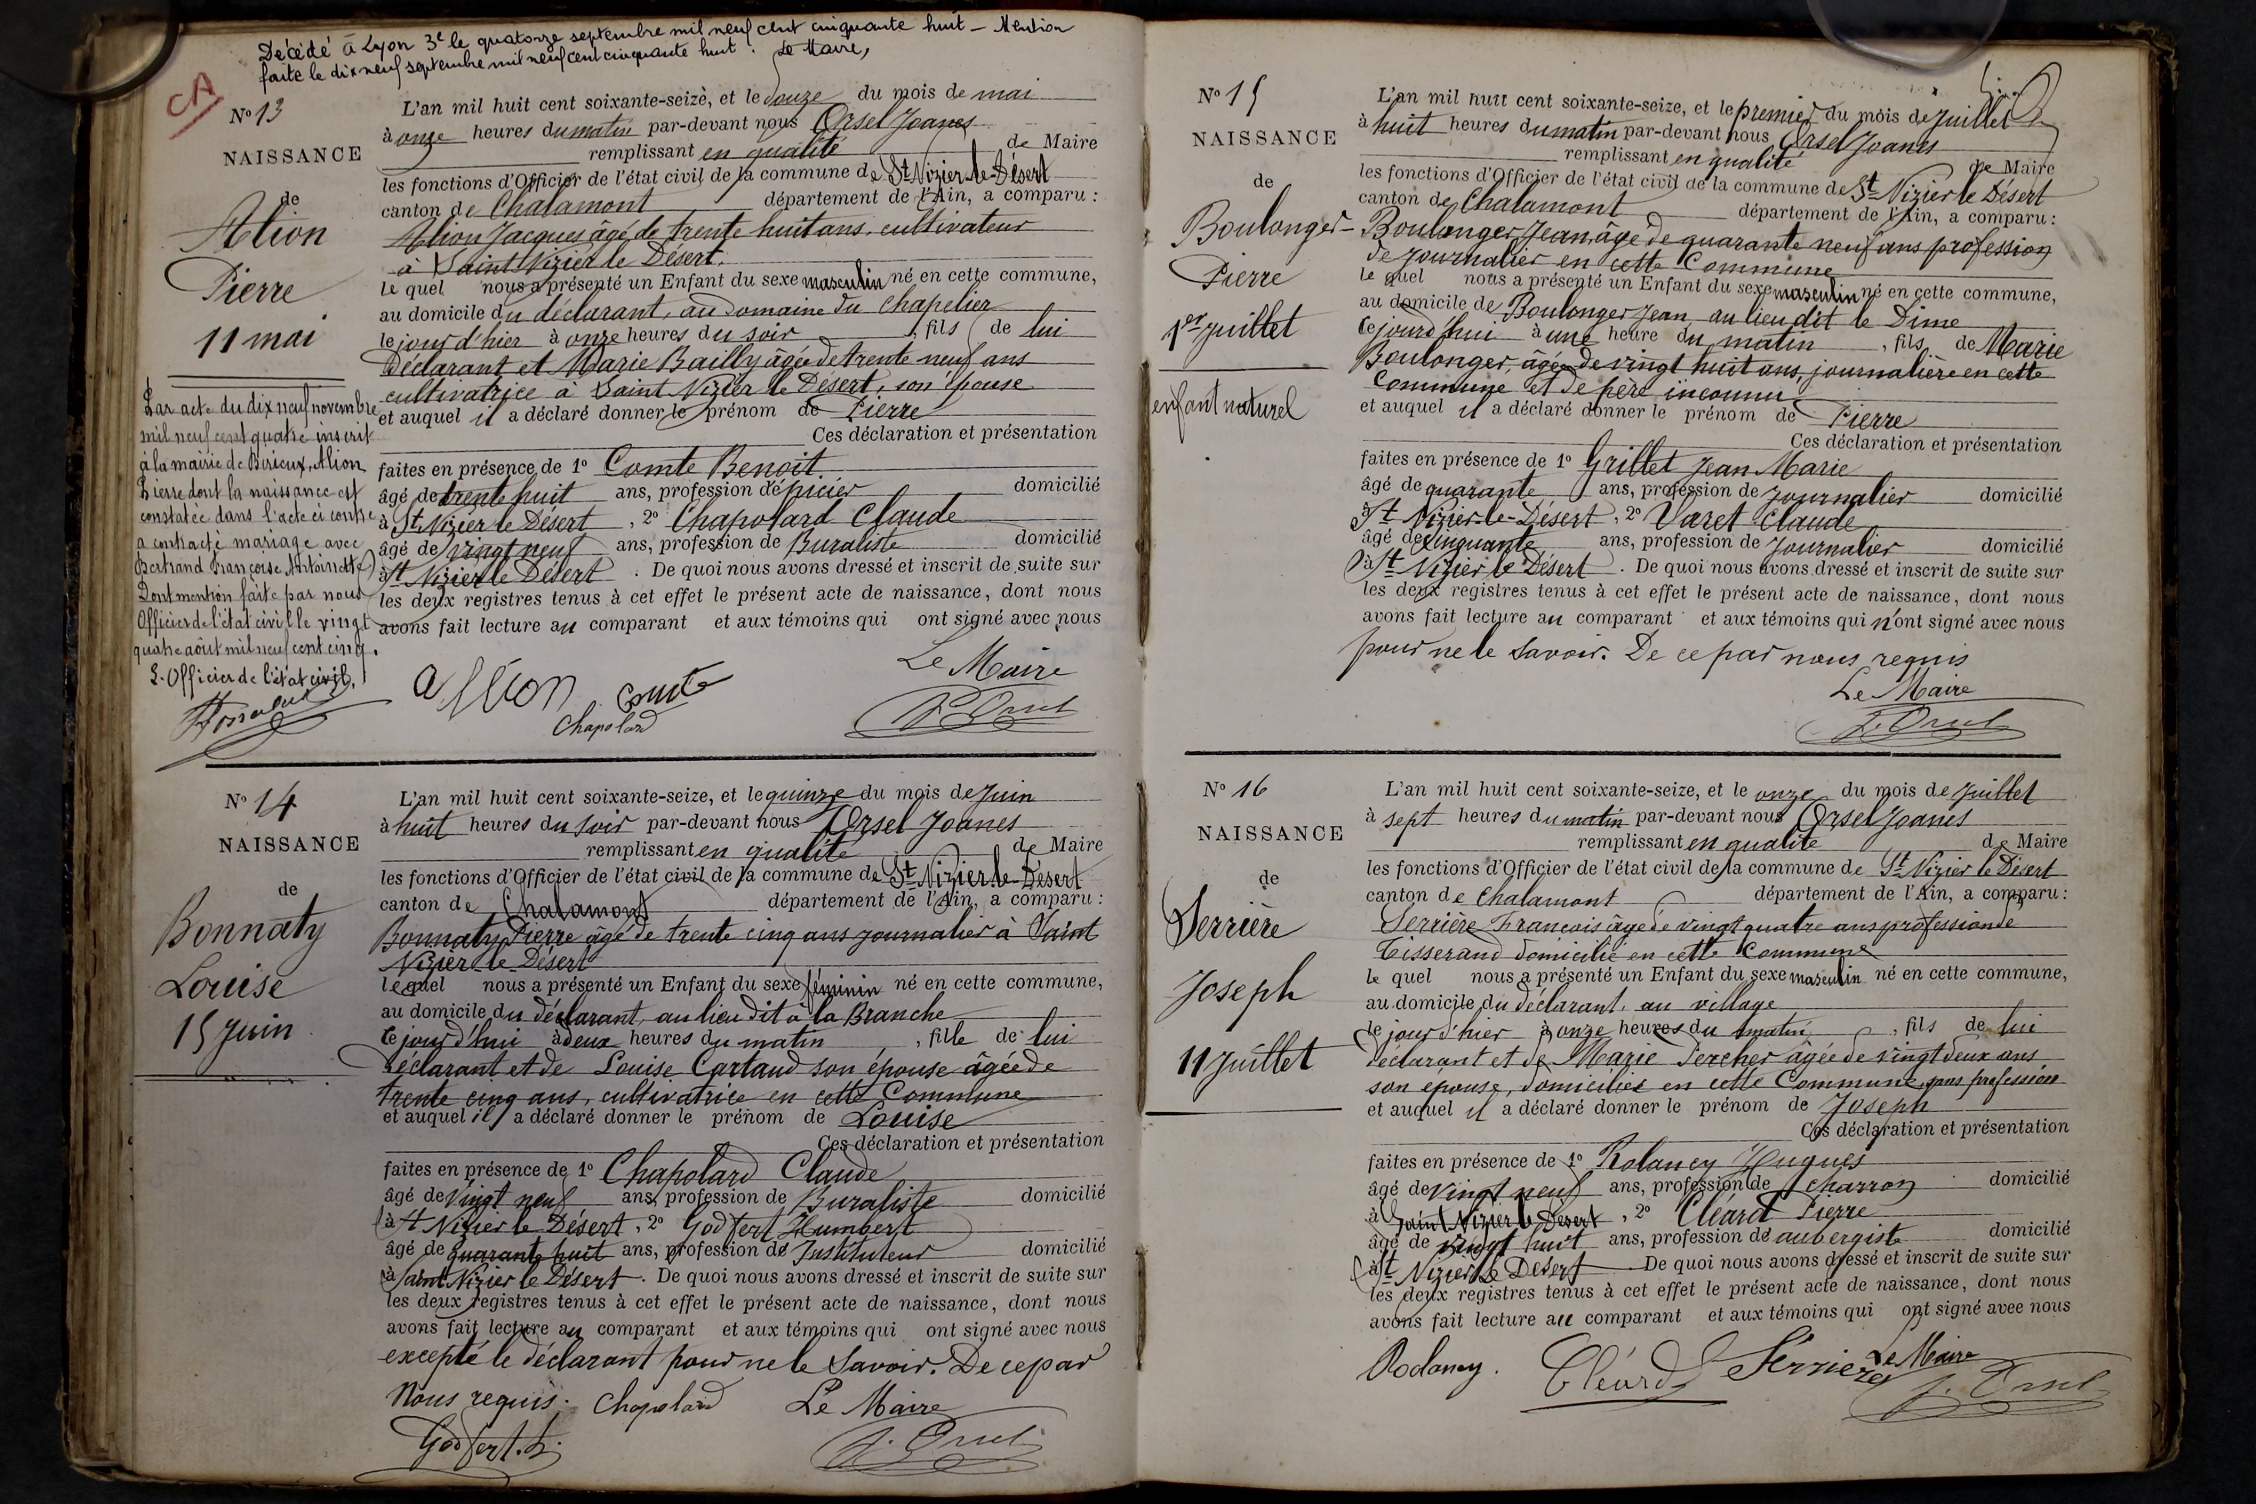 Décédé à Lyon 3e le quatorze septembre mil neuf cent cinquante huit - Mention
faite le dix neuf septembre mil neuf cent cinquante huit. Le Maire,
CA
No 13
NAISSANCE
de
Alion
Pierre
11 mai
Par acte du dix neuf novembre
mil neuf cent quatre inscrit
à la mairie de Birieux, Alion
Pierre dont la naissance est
constatée dans l'acte ci contre
a contracté mariage avec
Bertrand Françoise Antoinette
Dont mention faite par nous
Officier de l'état civil le vingt
quatre août mil neuf cent cinq.
L'Officier de l'état civil,
L'an mil huit cent soixante-seize, et le douze du mois de mai
à onze heures du matin par-devant nous Orsel Joanes
remplissant en qualité de Maire
les fonctions d'Officier de l'état civil de la commune de St Nizier-le-Désert
canton de Chalamont département de l'Ain, a comparu :
Alion Jacques âgé de trente huit ans, cultivateur
à Saint Nizier le Désert.
le quel nous a présenté un Enfant du sexe masculin né en cette commune,
au domicile du déclarant, au Domaine du Chapelier
le jour d'hier à onze heures du soir , fils de lui
Déclarant et Marie Bailly âgée de trente neuf ans
cultivatrice à Saint Nizier le Désert, son épouse
et auquel il a déclaré donner le prénom de Pierre
Ces déclaration et présentation
faites en présence de 1o Comte Benoit
âgé de trente huit ans, profession d'épicier domicilié
à St Nizier le Désert , 2o Chapolard Claude
âgé de vingt neuf ans, profession de Buraliste domicilié
à St Nizier le Désert . De quoi nous avons dressé et inscrit de suite sur
les deux registres tenus à cet effet le présent acte de naissance, dont nous
avons fait lecture au comparant et aux témoins qui ont signé avec nous
Le Maire
allion Comte
Chapolard
J. Orsel
No 14
NAISSANCE
de
Bonnaty
Louise
15 Juin
L'an mil huit cent soixante-seize, et le quinze du mois de Juin
à huit heures du soir par-devant nous Orsel Joanes
remplissant en qualité de Maire
les fonctions d'Officier de l'état civil de la commune de St Nizier-le-Désert
canton de Chalamont département de l'Ain, a comparu :
Bonnaty Pierre âgé de trente cinq ans journalier à Saint
Nizier le Désert
le quel nous a présenté un Enfant du sexe féminin né en cette commune,
au domicile du déclarant, au lieu dit à la Branche
ce jourd'hui à deux heures du matin , fille de lui
déclarant et de Louise Cartaud son épouse âgée de
trente cinq ans, cultivatrice en cette Commune
et auquel il a déclaré donner le prénom de Louise
Ces déclaration et présentation
faites en présence de 1o Chapolard Claude
âgé de vingt neuf ans, profession de Buraliste domicilié
à St Nizier le Désert , 2o Godfert Humbert
âgé de quarante huit ans, profession de Instituteur domicilié
à Saint Nizier le Désert . De quoi nous avons dressé et inscrit de suite sur
les deux registres tenus à cet effet le présent acte de naissance, dont nous
avons fait lecture au comparant et aux témoins qui ont signé avec nous
excepté le déclarant pour ne le savoir. De ce par
Nous requis. Chapolard Le Maire
Godfert. h. J. Orsel
No 15
NAISSANCE
de
Boulonger
Pierre
1er Juillet
enfant naturel
L'an mil huit cent soixante-seize, et le premier du mois de Juillet
à huit heures du matin par-devant nous Orsel Joanes
remplissant en qualité de Maire
les fonctions d'Officier de l'état civil de la commune de St Nizier le Désert
canton de Chalamont département de l'Ain, a comparu :
Boulonger, Jean, âgé de quarante neuf ans profession
de Journalier en cette Commune
le quel nous a présenté un Enfant du sexe masculin né en cette commune,
au domicile de Boulonger Jean au lieu dit le Dime
ce jourd'hui à une heure du matin , fils de Marie
Boulonger, âgée de vingt huit ans, journalière en cette
Commune et de père inconnu
et auquel il a déclaré donner le prénom de Pierre
Ces déclaration et présentation
faites en présence de 1o Grillet Jean Marie
âgé de quarante ans, profession de Journalier domicilié
à St Nizier-le-Désert , 2o Varet Claude
âgé de cinquante ans, profession de Journalier domicilié
à St Nizier le Désert . De quoi nous avons dressé et inscrit de suite sur
les deux registres tenus à cet effet le présent acte de naissance, dont nous
avons fait lecture au comparant et aux témoins qui n'ont signé avec nous
pour ne le savoir. De ce par nous requis
Le Maire
J. Orsel
No 16
NAISSANCE
de
Serrière
Joseph
11 Juillet
L'an mil huit cent soixante-seize, et le onze du mois de Juillet
à sept heures du matin par-devant nous Orsel Joanes
remplissant en qualité de Maire
les fonctions d'Officier de l'état civil de la commune de St Nizier le Désert
canton de Chalamont département de l'Ain, a comparu :
Serrière François âgé de vingt quatre ans profession de
Tisserand domicilié en cette Commune
le quel nous a présenté un Enfant du sexe masculin né en cette commune,
au domicile du déclarant, au village
le jour d'hier à onze heures du matin , fils de lui
déclarant et de Marie Percher âgée de vingt deux ans
son épouse, domiciliée en cette Commune, sans profession
et auquel il a déclaré donner le prénom de Joseph
Ces déclaration et présentation
faites en présence de 1o Rolancy Hugues
âgé de vingt neuf ans, profession de charron domicilié
à Saint Nizier le Désert , 2o Cléard Pierre
âgé de vingt huit ans, profession de aubergiste domicilié
à St Nizier le Désert De quoi nous avons dressé et inscrit de suite sur
les deux registres tenus à cet effet le présent acte de naissance, dont nous
avons fait lecture au comparant et aux témoins qui ont signé avec nous
Rodancy. Cléard Serriere Le Maire
J. Orsel